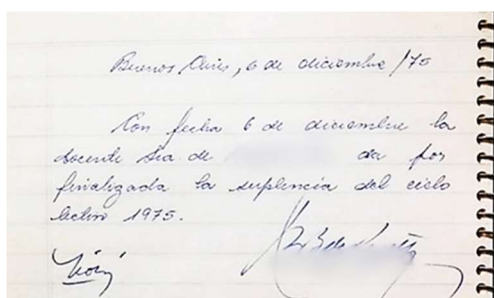 Buenos Aires, 6 de diciembre /75
Con fecha 6 de diciembre la
docente Sra de da por
finalizada la suplencia del ciclo
lectivo 1975.